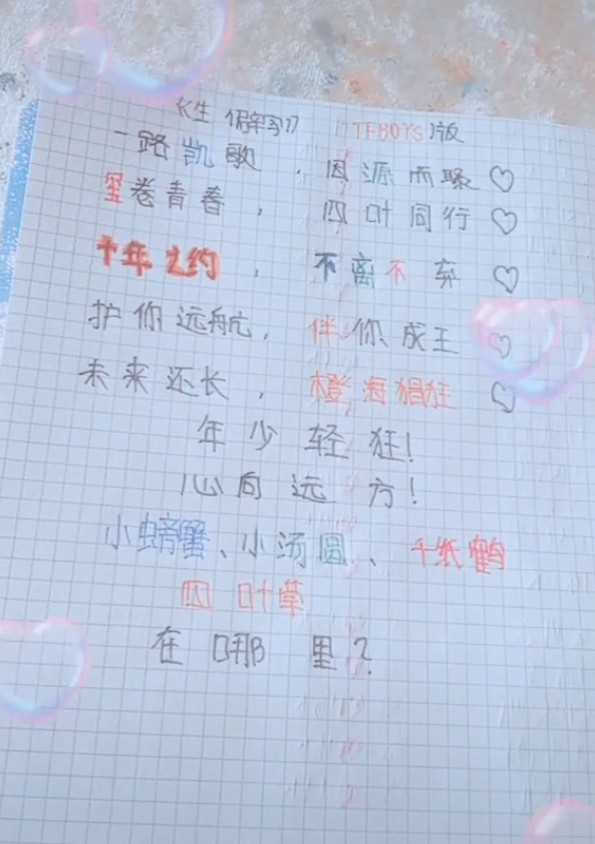 长生 TFBOYS版
一路凯歌，因源而聚♡
玺卷青春，四叶同行♡
十年之约，不离不弃♡
护你远航，伴你成王♡
未来还长，橙海猖狂♡
年少轻狂!
心向远方!
小螃蟹、小汤圆、千纸鹤
四叶草
在哪里?